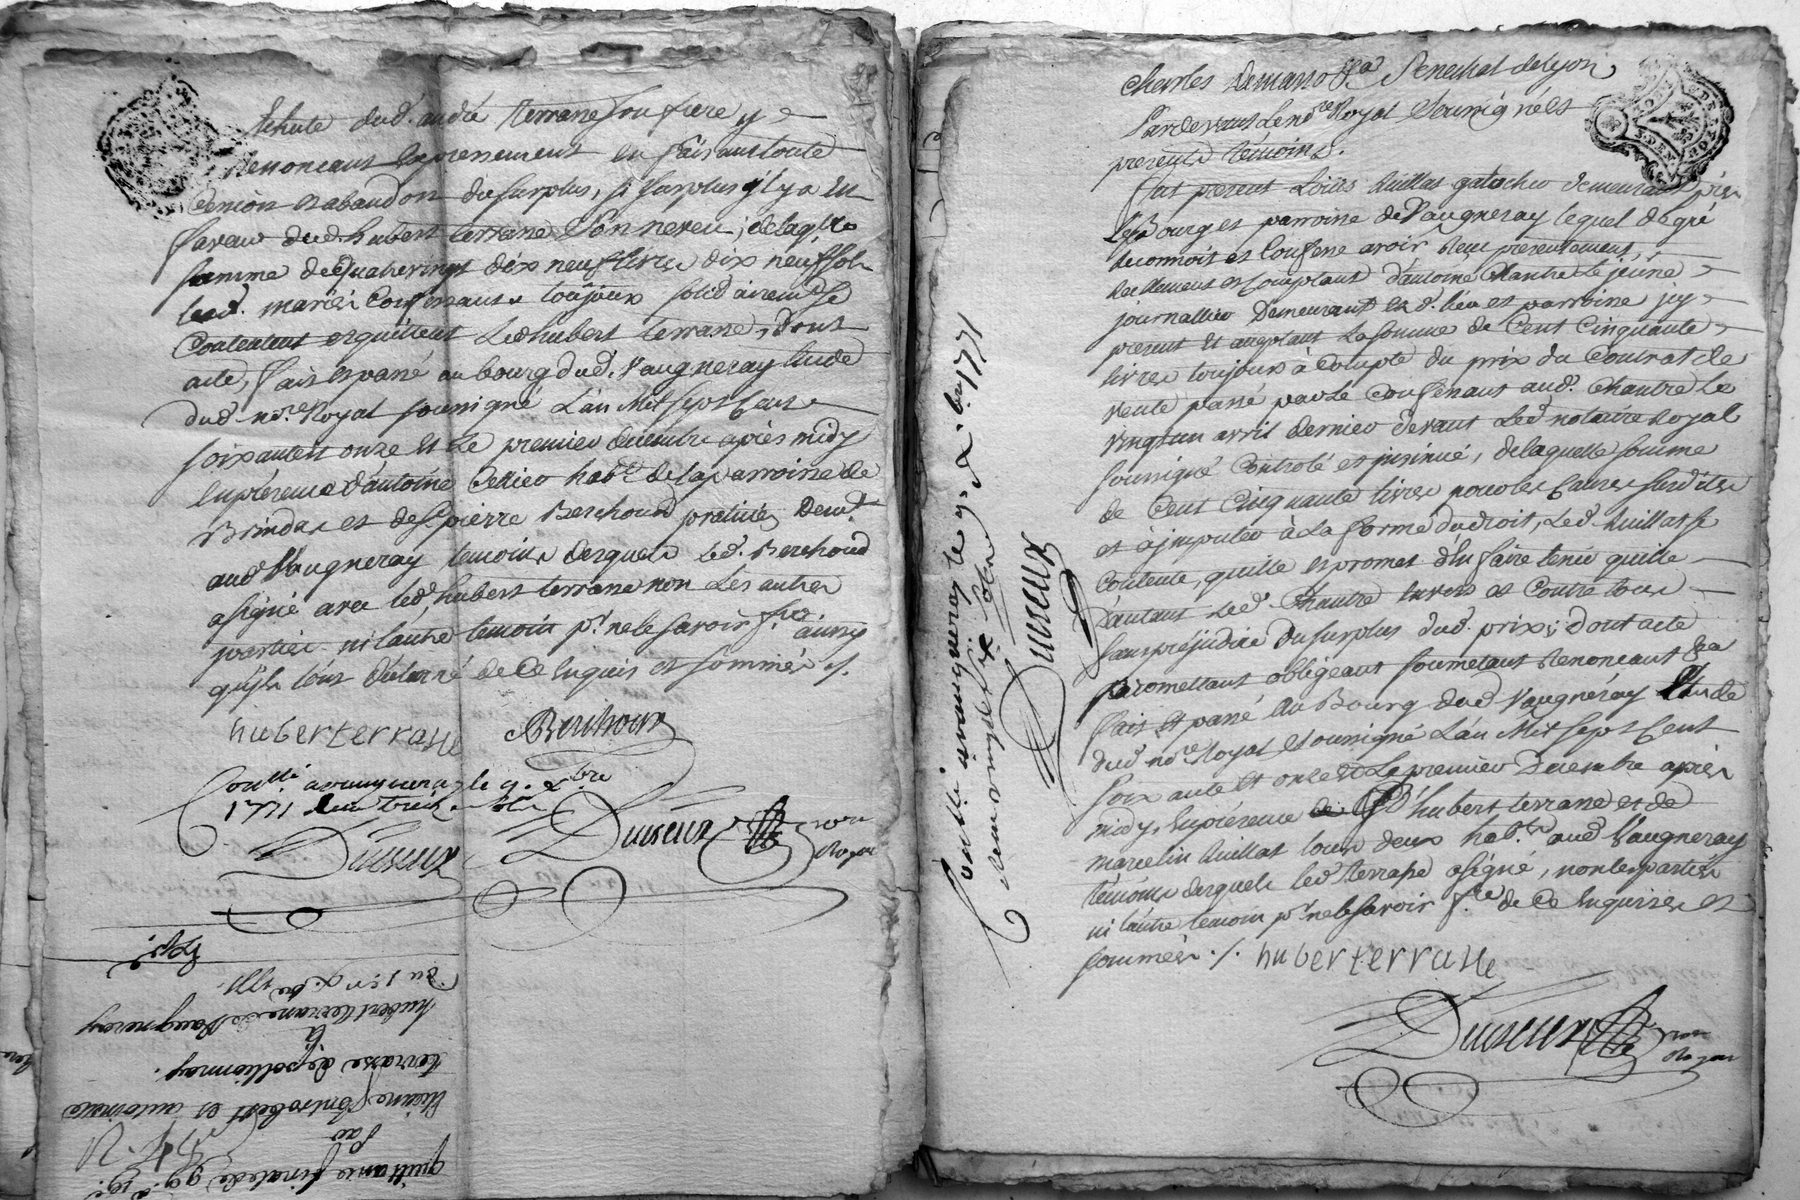 98
échute dud. andré terrasse son frere y
Renonceant Expressement En faisant toute
Cession et abandon du surplus, si surplus y a En
faveur dud. hubert terrasse son neveu; de laq.lle
somme de quatrevingt dix neuf livres dix neuf sols
led. mariés Confessants toujours solidairem.t se
Contentent et quittent Led hubert terrasse, Dont
acte, fait et passé au bourg dud. Vaugneray Etude
dud. no.re Royal soussigné L'an Mil sept Cent
soixante et onze Et Le premier décembre après midy
En présence d'antoine hab.t de la parroisse de
Brindas et de s.r pierre Berchoud praticien Demt.
aud Vaugneray temoins desquels Led. Berchoud
a signé avec led. hubert terrasse non Les autres
parties ni l'autre temoin p.r ne le savoir f.re ainsy
qu'ils l'ont déclaré de Ce Enquis et sommés ./.
huberterrasse Berchoud
Con.llé a vaugneray le 9. X.bre
1771 Reçu treize sols
Duiseux Duiseux no.re
Royal
Exp.é
du 1er X.bre 1771
hubert terrasse de Vaugneray
à
terrasse de pollionnay.
Etienne et antoinette
par
quittance finale de 99.# 19.s
Charles Demasso &a Senechal de Lyon
Pardevant Le no.re Royal Soussigné Et
presents témoins.
fut present Louis huillat galocher demeurant près
Le Bourg et parroisse de Vaugneray lequel de gré
Reconnoit et Confesse avoir Reçu presentement,
Réellement et Comptant d'antoine Chantre Le jeune
journallier Demeurant Esd. lieu et parroisse icy
present et acceptant La somme de Cent Cinquante
livres toujours à Compte du prix du Contrat de
vente passé par le Confessant aud. Chantre Le
vingt un avril dernier devant Led notaire Royal
soussigné Controlé et insinué, de laquelle somme
de Cent Cinquante livres pour les Causes susdites
et à imputer à la forme du droit, Led. huillat se
Contente, quitte et promet d'En faire tenir quitte
D'autant Led. Chantre Envers et Contre tous
sans préjudice du surplus dud. prix; dont acte
promettant obligeant soumetant Renonceant &a
fait Et passé Au Bourg dud Vaugneray Etude
dud no.re Royal soussigné L'an Mil sept Cent
soixante et onze Et Le premier Décembre après
midy, En présence de S.r hubert terrasse et de
marcelin huillat tous deux hab.ts aud Vaugneray
témoins desquels led terrasse a signé, non les parties
ni l'autre temoin p.r ne le savoir f.re de Ce Enquises et
sommées ./. huberterrasse
Duiseux no.re
Royal
Controllé a vaugneray le 9. X.bre 1771
Reçu vingt six sols
Duiseux